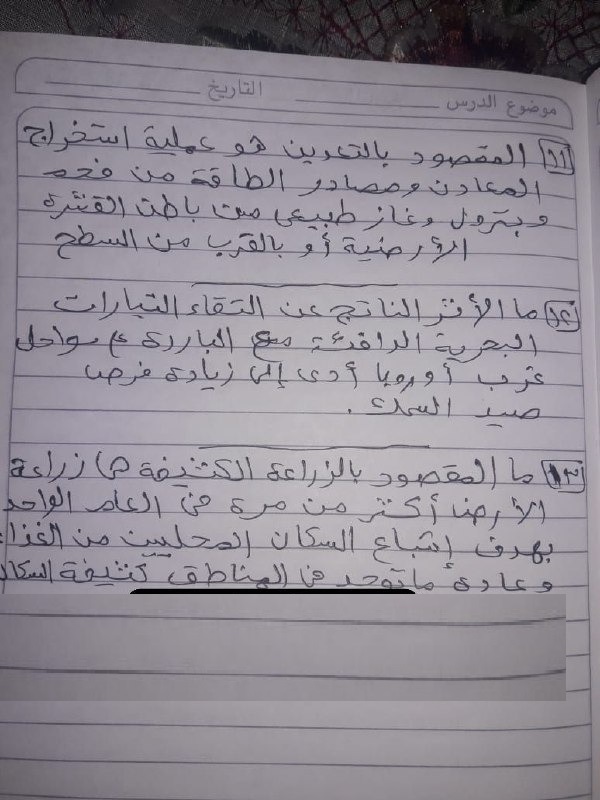 موضوع الدرس التاريخ
١١ المقصود بالتعدين هو عملية استخراج
المعادن ومصادر الطاقة من فحم
وبترول وغاز طبيعى من باطن القشرة
الأرضية أو بالقرب من السطح
١٢ ما الأثر الناتج عن التقاء التيارات
البحرية الدافئة مع الباردة ع سواحل
غرب أوروبا أدى إلى زيادة فرص
صيد السمك .
١٣ ما المقصود بالزراعة الكثيفة هى زراعة
الأرض أكثر من مرة فى العام الواحد
بهدف إشباع السكان المحليين من الغذاء
وعادة ما توجد فى المناطق كثيفة السكان